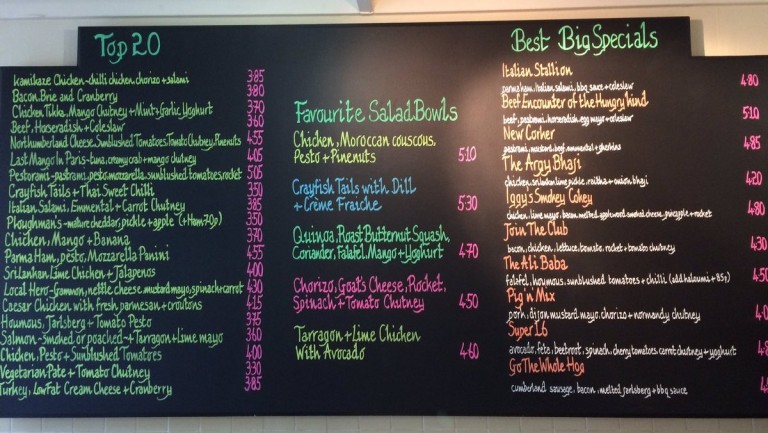 Top 20
Kamikaze Chicken-chilli chicken, chorizo + salami 3.85
Bacon, Brie and Cranberry 3.80
Chicken Tikka, Mango Chutney + Mint + Garlic Yoghurt 3.70
Beef, Horseradish + Coleslaw 3.60
Northumberland Cheese, Sunblushed Tomatoes, Tomato Chutney, Pinenuts 4.55
Last Mango In Paris-tuna, creamy crab + mango chutney 4.05
Pestorami-pastrami, pesto, mozzarella, sunblushed tomatoes, rocket 5.05
Crayfish Tails + Thai Sweet Chilli 3.50
Italian Salami, Emmental + Carrot Chutney 3.85
Ploughman's - mature cheddar, pickle + apple (+ Ham 70p) 3.50
Chicken, Mango + Banana 3.70
Parma Ham, pesto, Mozzarella Panini 4.55
Sri Lankan Lime Chicken + Jalapenos 4.00
Local Hero-Gammon, nettle cheese, mustard mayo, spinach + carrot 4.30
Caesar Chicken with fresh parmesan + croutons 4.15
Houmous, Jarlsberg + Tomato Pesto 3.75
Salmon-Smoked or poached-+ Tarragon + Lime mayo 3.60
Chicken, Pesto + Sunblushed Tomatoes 4.00
Vegetarian Pate + Tomato Chutney 3.30
Turkey, LowFat Cream Cheese + Cranberry 3.85
Favourite Salad Bowls
Chicken, Moroccan couscous,
Pesto + Pinenuts 5.10
Crayfish Tails with Dill
+ Crème Fraiche 5.30
Quinoa, Roast Butternut Squash,
Coriander, Falafel, Mango + Yoghurt 4.70
Chorizo, Goat's Cheese, Rocket,
Spinach + Tomato Chutney 4.50
Tarragon + Lime Chicken
With Avocado 4.60
Best Big Specials
Italian Stallion
parma ham, italian salami, bbq sauce + coleslaw 4.80
Beef Encounter of the Hungry Kind
beef, pastrami, horseradish, egg mayo + coleslaw 5.10
New Yorker
pastrami, mustard, beef, emmental + gherkins 4.85
The Argy Bhaji
chicken, sri lankan lime pickle, raitha + onion bhaji 4.20
Iggy's Smokey Cokey
chicken, lime mayo, bacon, melted applewood smoked cheese, pineapple + rocket 4.80
Join The Club
bacon, chicken, lettuce, tomato, rocket + tomato chutney 4.30
The Ali Baba
falafel, houmous, sunblushed tomatoes + chilli (add haloumi + 85p) 4.50
Pig n Mix
pork, dijon mustard mayo, chorizo + normandy chutney
Super 16
avocado, feta, beetroot, spinach, cherry tomatoes, carrot chutney + yoghurt
Go The Whole Hog
cumberland sausage, bacon, melted jarlsberg + bbq sauce